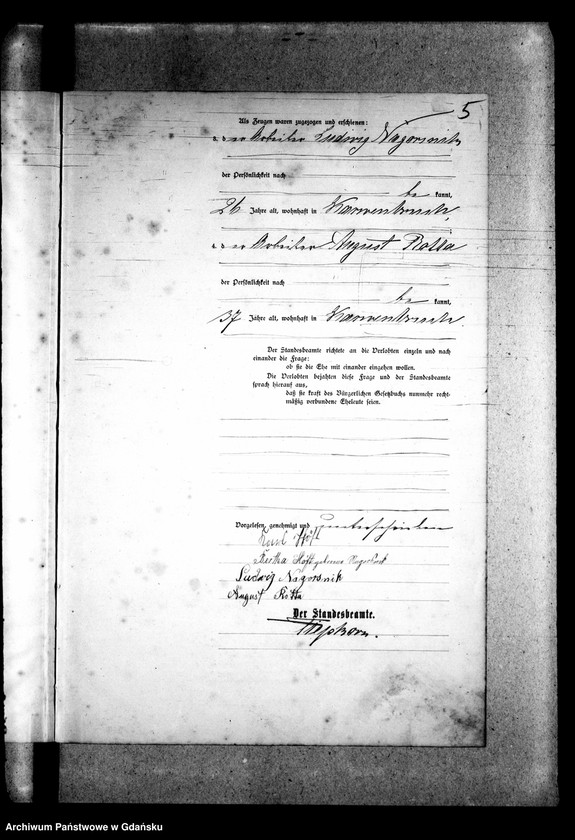 5
Als Zeugen waren zugezogen und erschienen:
der Arbeiter Ludwig Nagorsnik
der Persönlichkeit nach
be kannt,
26 Jahre alt, wohnhaft in Karwenbruch,
4. der Arbeiter August Rotta
der Persönlichkeit nach
be kannt,
37 Jahre alt, wohnhaft in Karwenbruch.
Der Standesbeamte richtete an die Verlobten einzeln und nach
einander die Frage:
ob sie die Ehe mit einander eingehen wollen.
Die Verlobten bejahten diese Frage und der Standesbeamte
sprach hierauf aus,
daß sie kraft des Bürgerlichen Gesetzbuchs nunmehr recht-
mäßig verbundene Eheleute seien.
Vorgelesen, genehmigt und unterschrieben
Bertha geborene
Ludwig Nagorsnik
August Rotta
Der Standesbeamte.
Archiwum Państwowe w Gdańsku